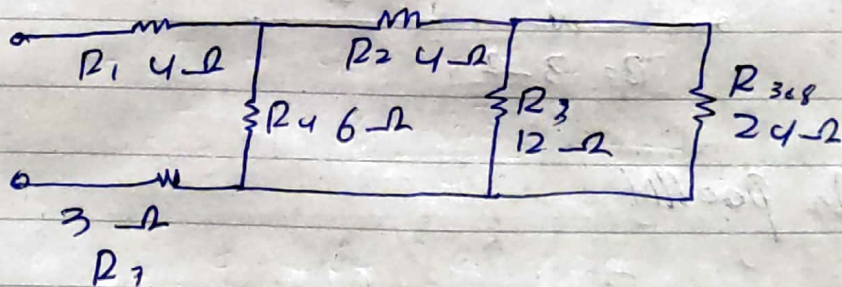 R1 4Ω
R2 4Ω
R4 6Ω
R3
12Ω
R3&8
24Ω
3 Ω
R7